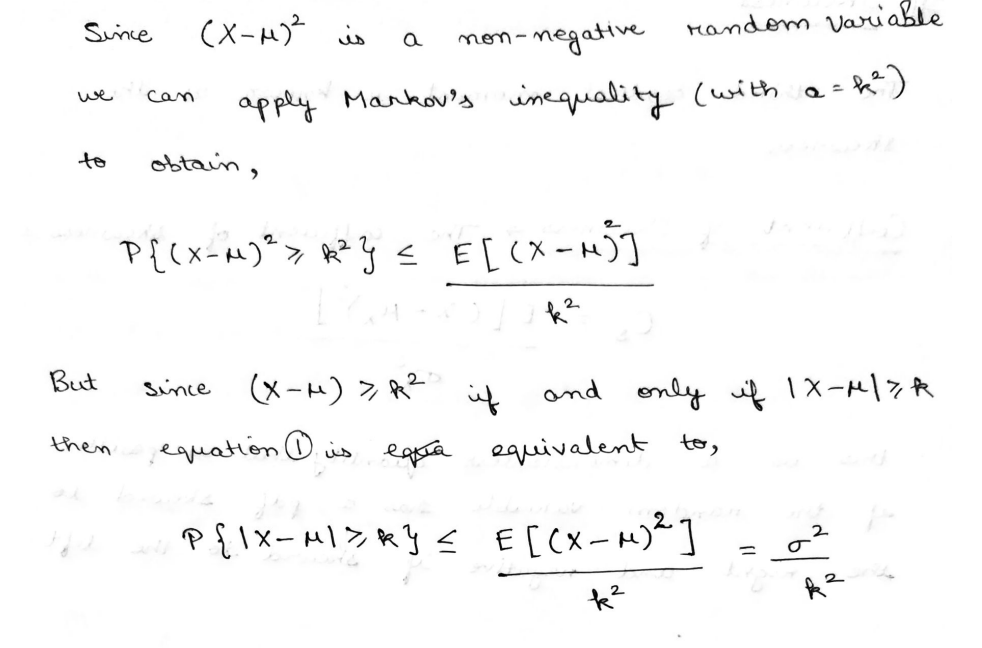 Since (X-μ)² is a non-negative random variable
we can apply Markov's inequality (with a = k²)
to obtain,
P{(X-μ)² ≥ k²} ≤ E[(X-μ)²]
k²
But since (X-μ) ≥ k² if and only if |X-μ| ≥ k
then equation ① is equivalent to,
P{|X-μ| ≥ k} ≤ E[(X-μ)²] = σ²
k² k²